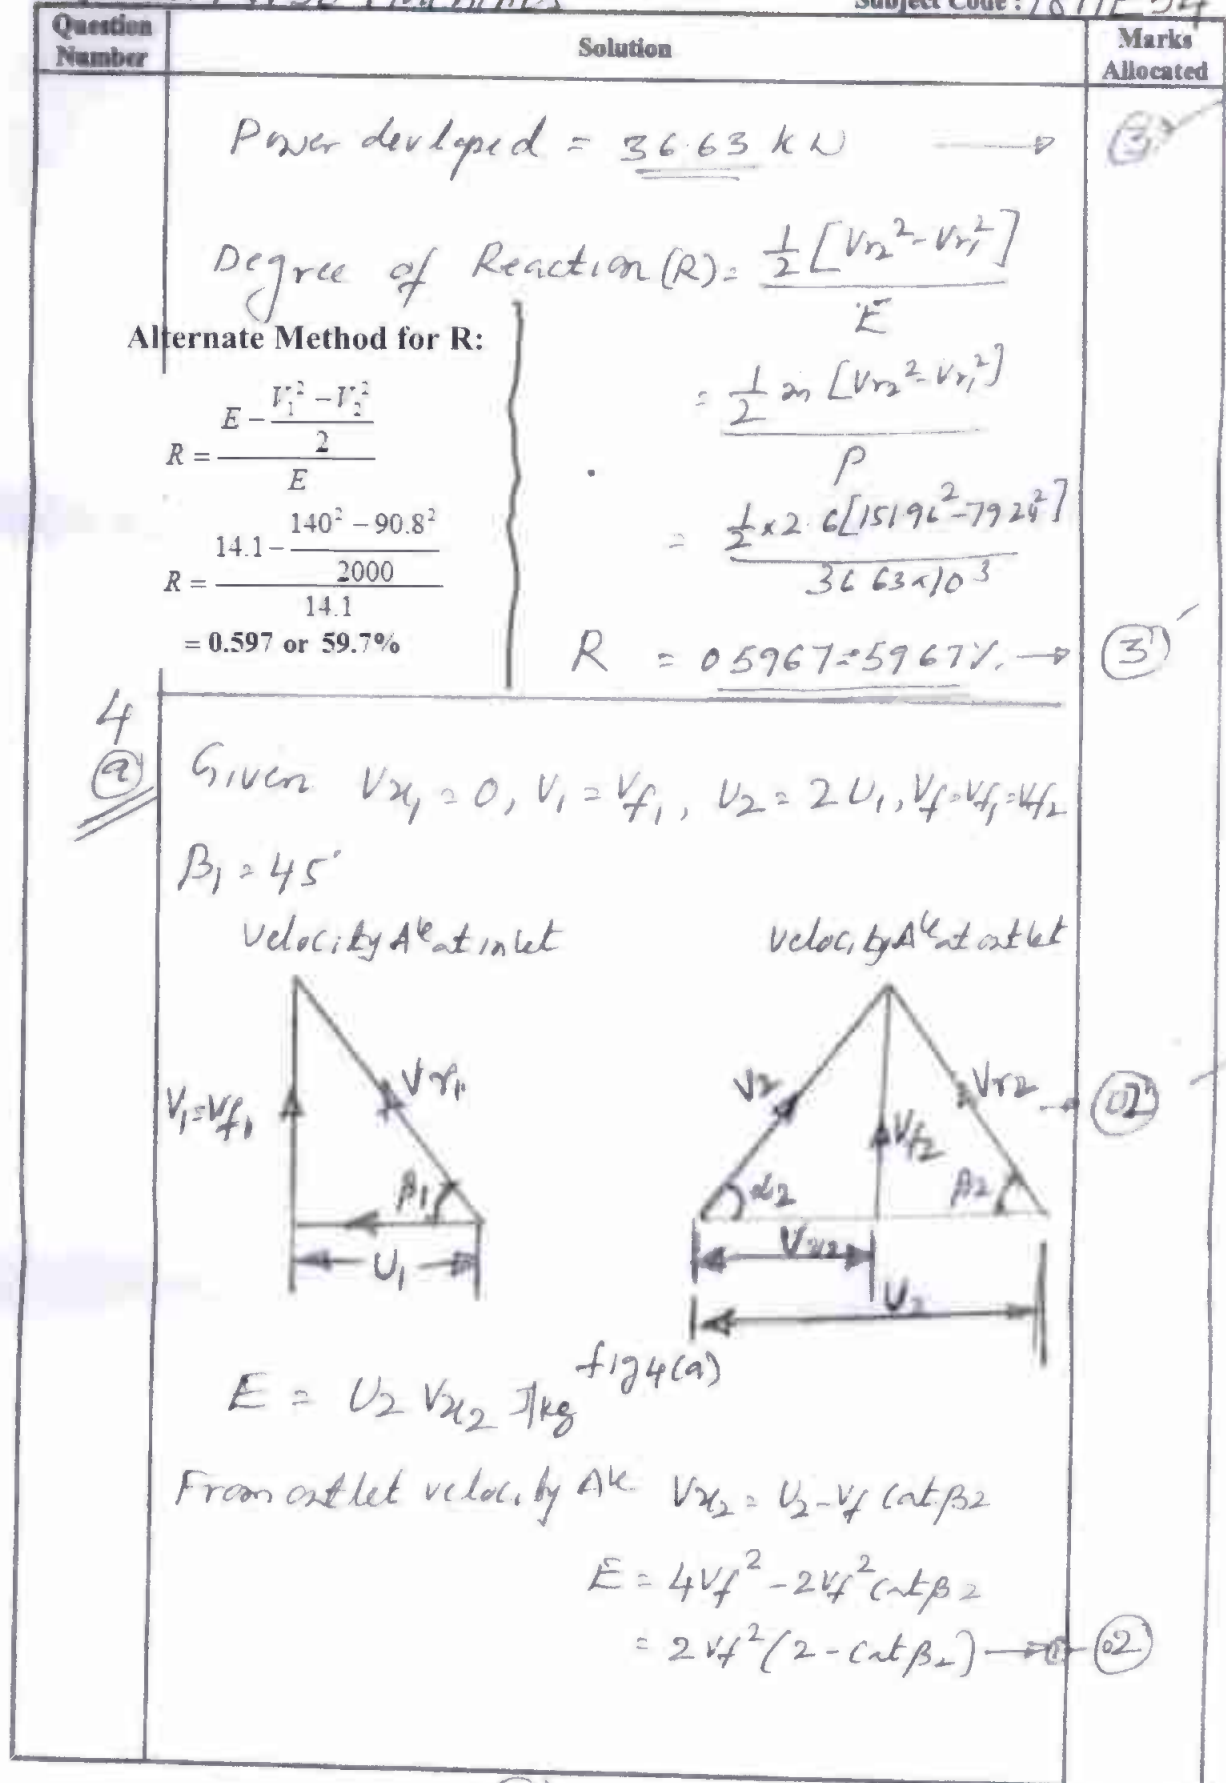 Subject Code : 18ME54
Question Number
Solution
Marks Allocated
Power devloped = 36.63 kW → (3)
Degree of Reaction (R) = ½[Vr₂² - Vr₁²] / E
Alternate Method for R:
R = (E - (V₁² - V₂²)/2) / E
R = (14.1 - (140² - 90.8²)/2000) / 14.1
= 0.597 or 59.7%
= ½ m [Vr₂² - Vr₁²] / P
= ½ × 2.6[151.96² - 79.24²] / 36.63×10³
R = 0.5967 = 59.67% → (3)
4
(a)
Given Vx₁ = 0, V₁ = Vf₁, U₂ = 2U₁, Vf = Vf₁ = Vf₂
β₁ = 45°
velocity Δle at inlet
velocity Δle at outlet
V₁=Vf₁
Vr₁
β₁
U₁
V₂
Vf₂
Vr₂
α₂
β₂
Vx₂
U₂
→ (02)
fig 4(a)
E = U₂ Vx₂ J/kg
From outlet velocity Δle Vx₂ = U₂ - Vf Cot β₂
E = 4Vf² - 2Vf² Cot β₂
= 2Vf² (2 - Cot β₂) → (1) (02)